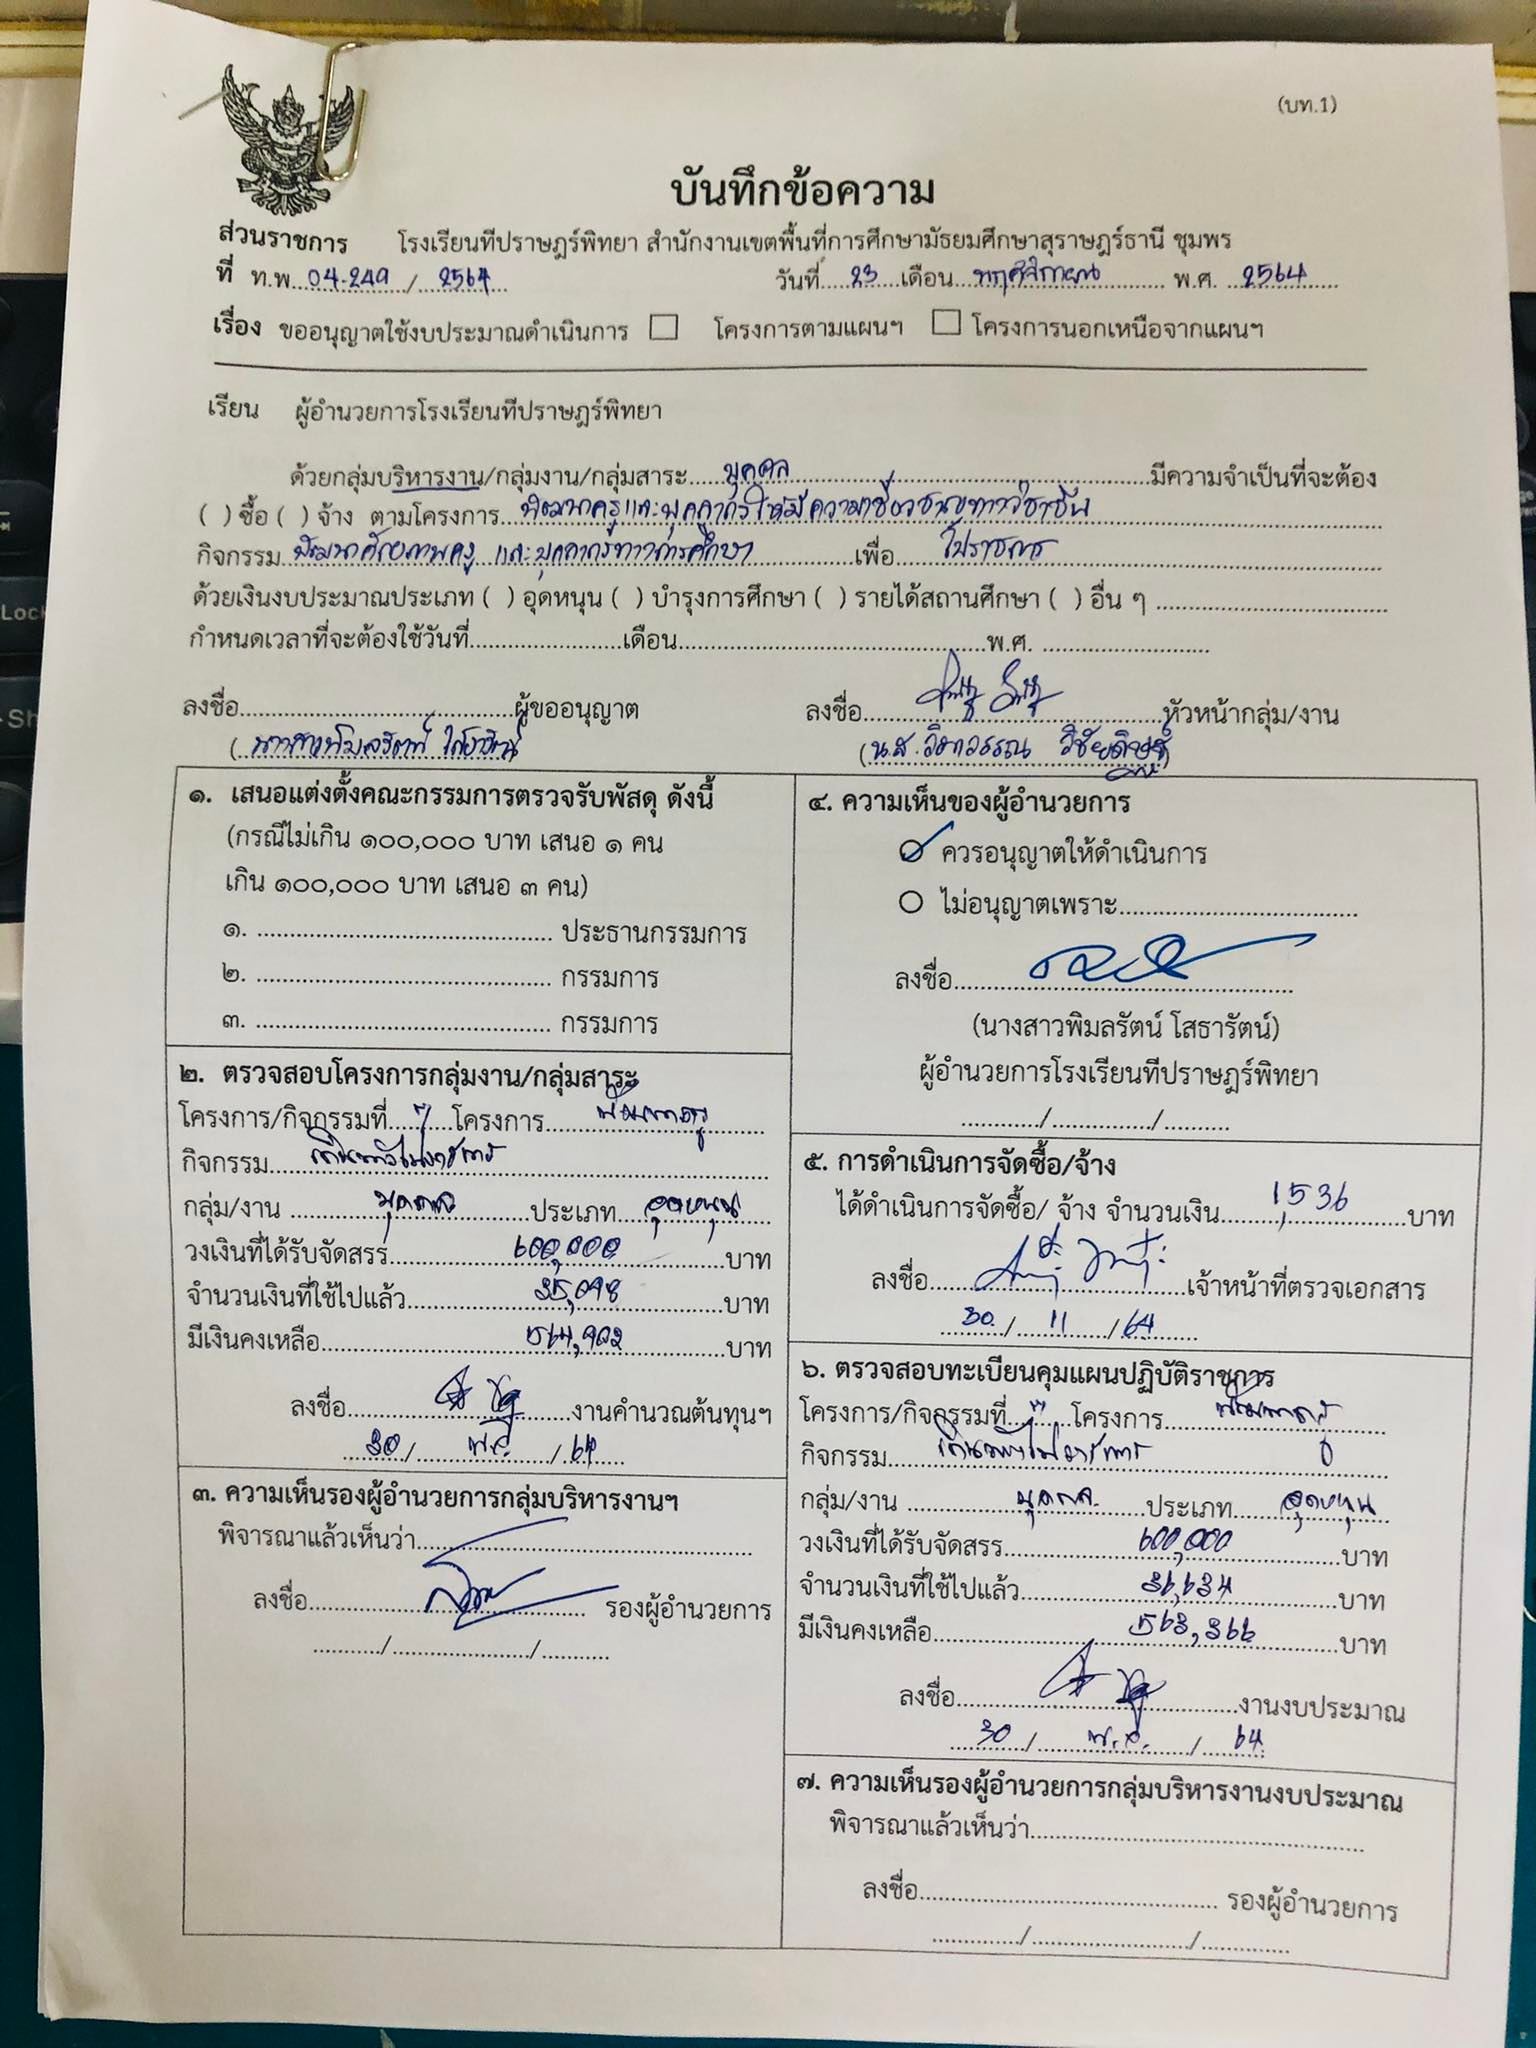 (บท.1)
บันทึกข้อความ
ส่วนราชการ โรงเรียนทีปราษฎร์พิทยา สำนักงานเขตพื้นที่การศึกษามัธยมศึกษาสุราษฎร์ธานี ชุมพร
ที่ ท.พ. 04-249 / 2564 วันที่ 23 เดือน พฤศจิกายน พ.ศ. 2564
เรื่อง ขออนุญาตใช้งบประมาณดำเนินการ ☐ โครงการตามแผนฯ ☐ โครงการนอกเหนือจากแผนฯ
เรียน ผู้อำนวยการโรงเรียนทีปราษฎร์พิทยา
ด้วยกลุ่มบริหารงาน/กลุ่มงาน/กลุ่มสาระ บุคคล มีความจำเป็นที่จะต้อง
( ) ซื้อ ( ) จ้าง ตามโครงการ พัฒนาครูและบุคลากรให้มีความเชี่ยวชาญทางวิชาชีพ
กิจกรรม พัฒนาศักยภาพครู และบุคลากรทางการศึกษา เพื่อ ไปราชการ
ด้วยเงินงบประมาณประเภท ( ) อุดหนุน ( ) บำรุงการศึกษา ( ) รายได้สถานศึกษา ( ) อื่น ๆ
กำหนดเวลาที่จะต้องใช้วันที่ เดือน พ.ศ.
ลงชื่อ ผู้ขออนุญาต ลงชื่อ หัวหน้ากลุ่ม/งาน
(นางสาวพิมลรัตน์ โสธารัตน์) (น.ส. วิภาวรรณ วิชัยดิษฐ์)
๑. เสนอแต่งตั้งคณะกรรมการตรวจรับพัสดุ ดังนี้
(กรณีไม่เกิน ๑๐๐,๐๐๐ บาท เสนอ ๑ คน
เกิน ๑๐๐,๐๐๐ บาท เสนอ ๓ คน)
๑. ประธานกรรมการ
๒. กรรมการ
๓. กรรมการ
๒. ตรวจสอบโครงการกลุ่มงาน/กลุ่มสาระ
โครงการ/กิจกรรมที่ โครงการ พัฒนาครู
กิจกรรม เดินทางไปราชการ
กลุ่ม/งาน บุคคล ประเภท อุดหนุน
วงเงินที่ได้รับจัดสรร 600,000 บาท
จำนวนเงินที่ใช้ไปแล้ว 35,098 บาท
มีเงินคงเหลือ 564,902 บาท
ลงชื่อ งานคำนวณต้นทุนฯ
30 / พ.ย. / 64
๓. ความเห็นรองผู้อำนวยการกลุ่มบริหารงานฯ
พิจารณาแล้วเห็นว่า
ลงชื่อ รองผู้อำนวยการ
๔. ความเห็นของผู้อำนวยการ
ควรอนุญาตให้ดำเนินการ
ไม่อนุญาตเพราะ
ลงชื่อ
(นางสาวพิมลรัตน์ โสธารัตน์)
ผู้อำนวยการโรงเรียนทีปราษฎร์พิทยา
๕. การดำเนินการจัดซื้อ/จ้าง
ได้ดำเนินการจัดซื้อ/ จ้าง จำนวนเงิน 1,536 บาท
ลงชื่อ เจ้าหน้าที่ตรวจเอกสาร
30 / 11 / 64
๖. ตรวจสอบทะเบียนคุมแผนปฏิบัติราชการ
โครงการ/กิจกรรมที่ โครงการ พัฒนาครู
กิจกรรม เดินทางไปราชการ
กลุ่ม/งาน บุคคล ประเภท อุดหนุน
วงเงินที่ได้รับจัดสรร 600,000 บาท
จำนวนเงินที่ใช้ไปแล้ว 36,634 บาท
มีเงินคงเหลือ 563,366 บาท
ลงชื่อ งานงบประมาณ
30 / พ.ย. / 64
๗. ความเห็นรองผู้อำนวยการกลุ่มบริหารงานงบประมาณ
พิจารณาแล้วเห็นว่า
ลงชื่อ รองผู้อำนวยการ